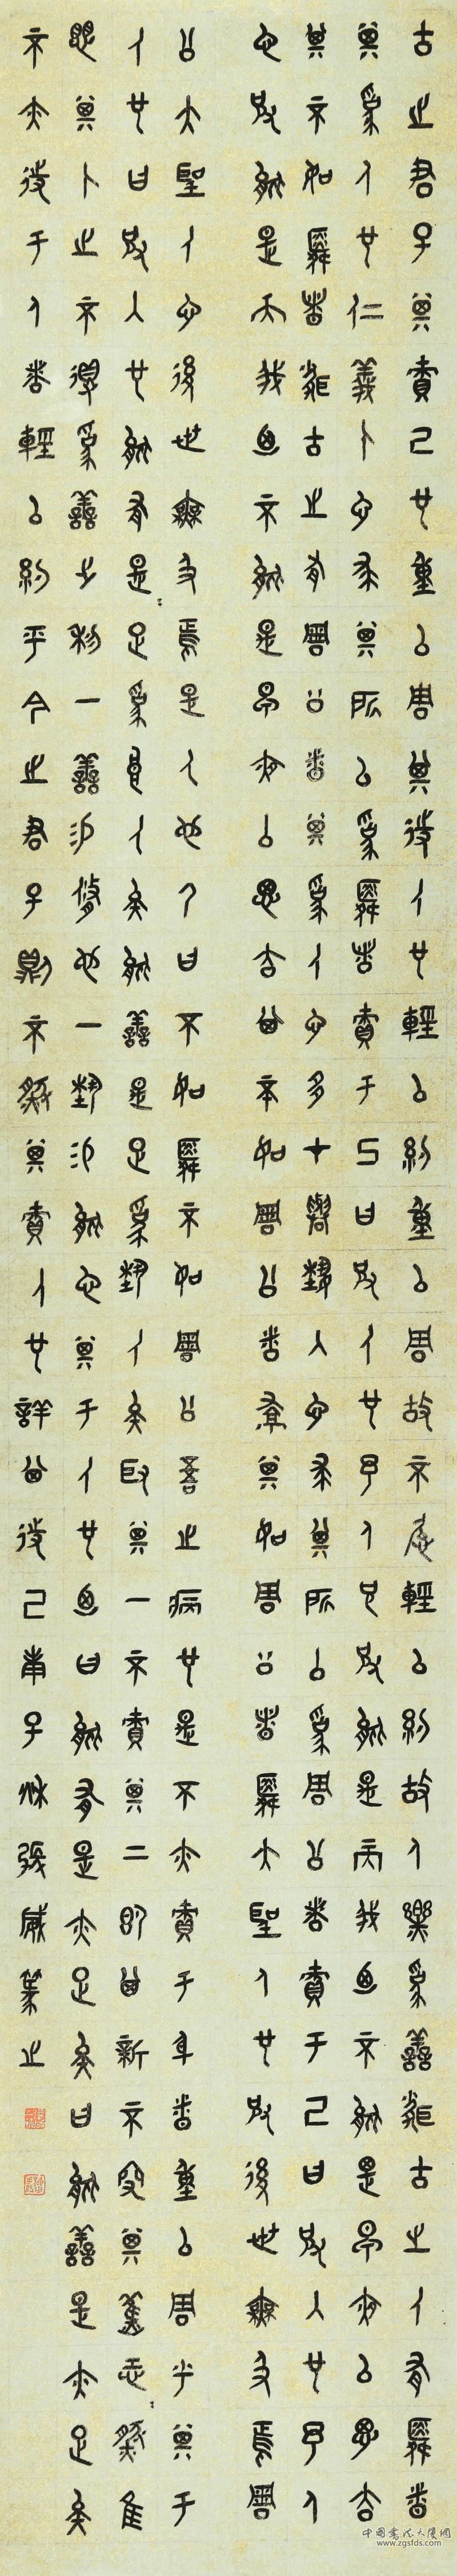 古之君子其責己也重以周其待人也輕以約重以周故不怠輕以約故人樂為善聞古之人有舜者
其為人也仁義人也求其所以為舜者責于己曰彼人也予人也彼能是而我乃不能是早夜以思去
其不如舜者聞古之有周公者其為人也多才與藝人也求其所以為周公者責于己曰彼人也予人
也彼能是而我乃不能是早夜以思去其不如周公者就其如周公者舜大聖人也後世無及焉周
公大聖人也後世無及焉是人也乃曰不如舜不如周公吾之病也是不亦責于身者重以周乎其于
人也曰彼人也能有是足為良人矣能善是足為藝人矣取其一不責其二即其新不究其舊恐然惟
懼其人之不得為善之利一善易修也一藝易能也其于人也乃曰能有是亦足矣曰能善是亦足矣
不亦待于人者輕以約乎今之君子則不然其責人也詳其待己庚子秋張威篆之
中国书法大厦网
www.zgsfds.com